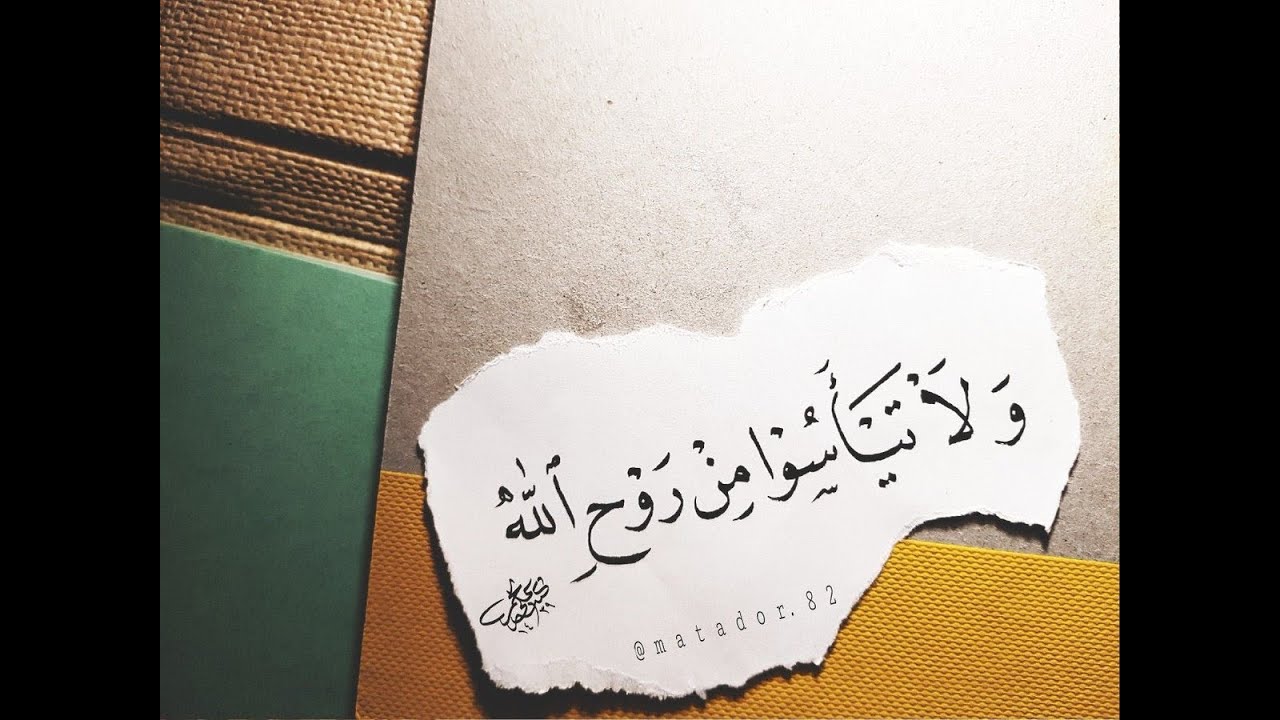 وَلَا تَيْأَسُوْا مِنْ رَوْحِ ٱللّٰهُ
@matador.82